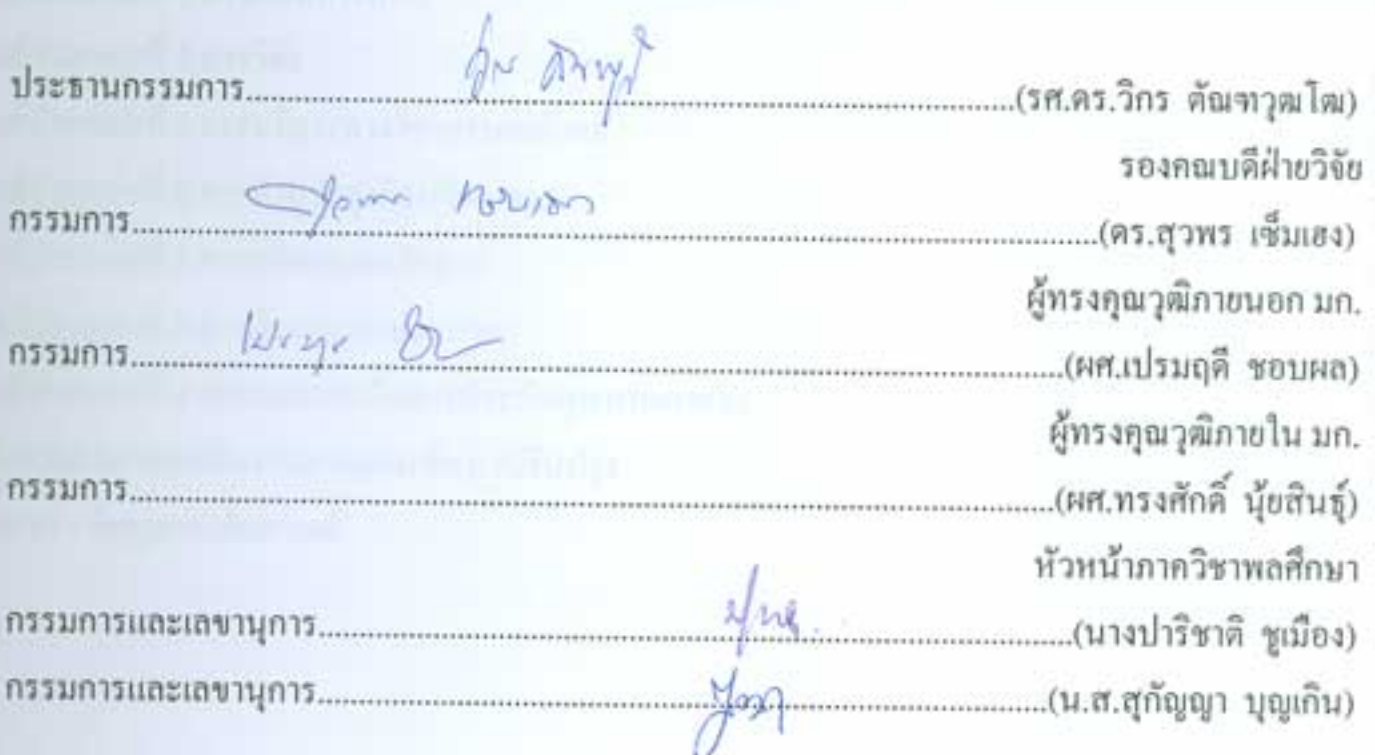 ประธานกรรมการ......................................................(รศ.ดร.วิกร ตัณฑวุฒโฒ)
รองคณบดีฝ่ายวิจัย
กรรมการ......................................................(ดร.สุวพร เซ็มเฮง)
ผู้ทรงคุณวุฒิภายนอก มก.
กรรมการ......................................................(ผศ.เปรมฤดี ชอบผล)
ผู้ทรงคุณวุฒิภายใน มก.
กรรมการ......................................................(ผศ.ทรงศักดิ์ นุ้ยสินธุ์)
หัวหน้าภาควิชาพลศึกษา
กรรมการและเลขานุการ......................................................(นางปาริชาติ ชูเมือง)
กรรมการและเลขานุการ......................................................(น.ส.สุกัญญา บุญเกิน)